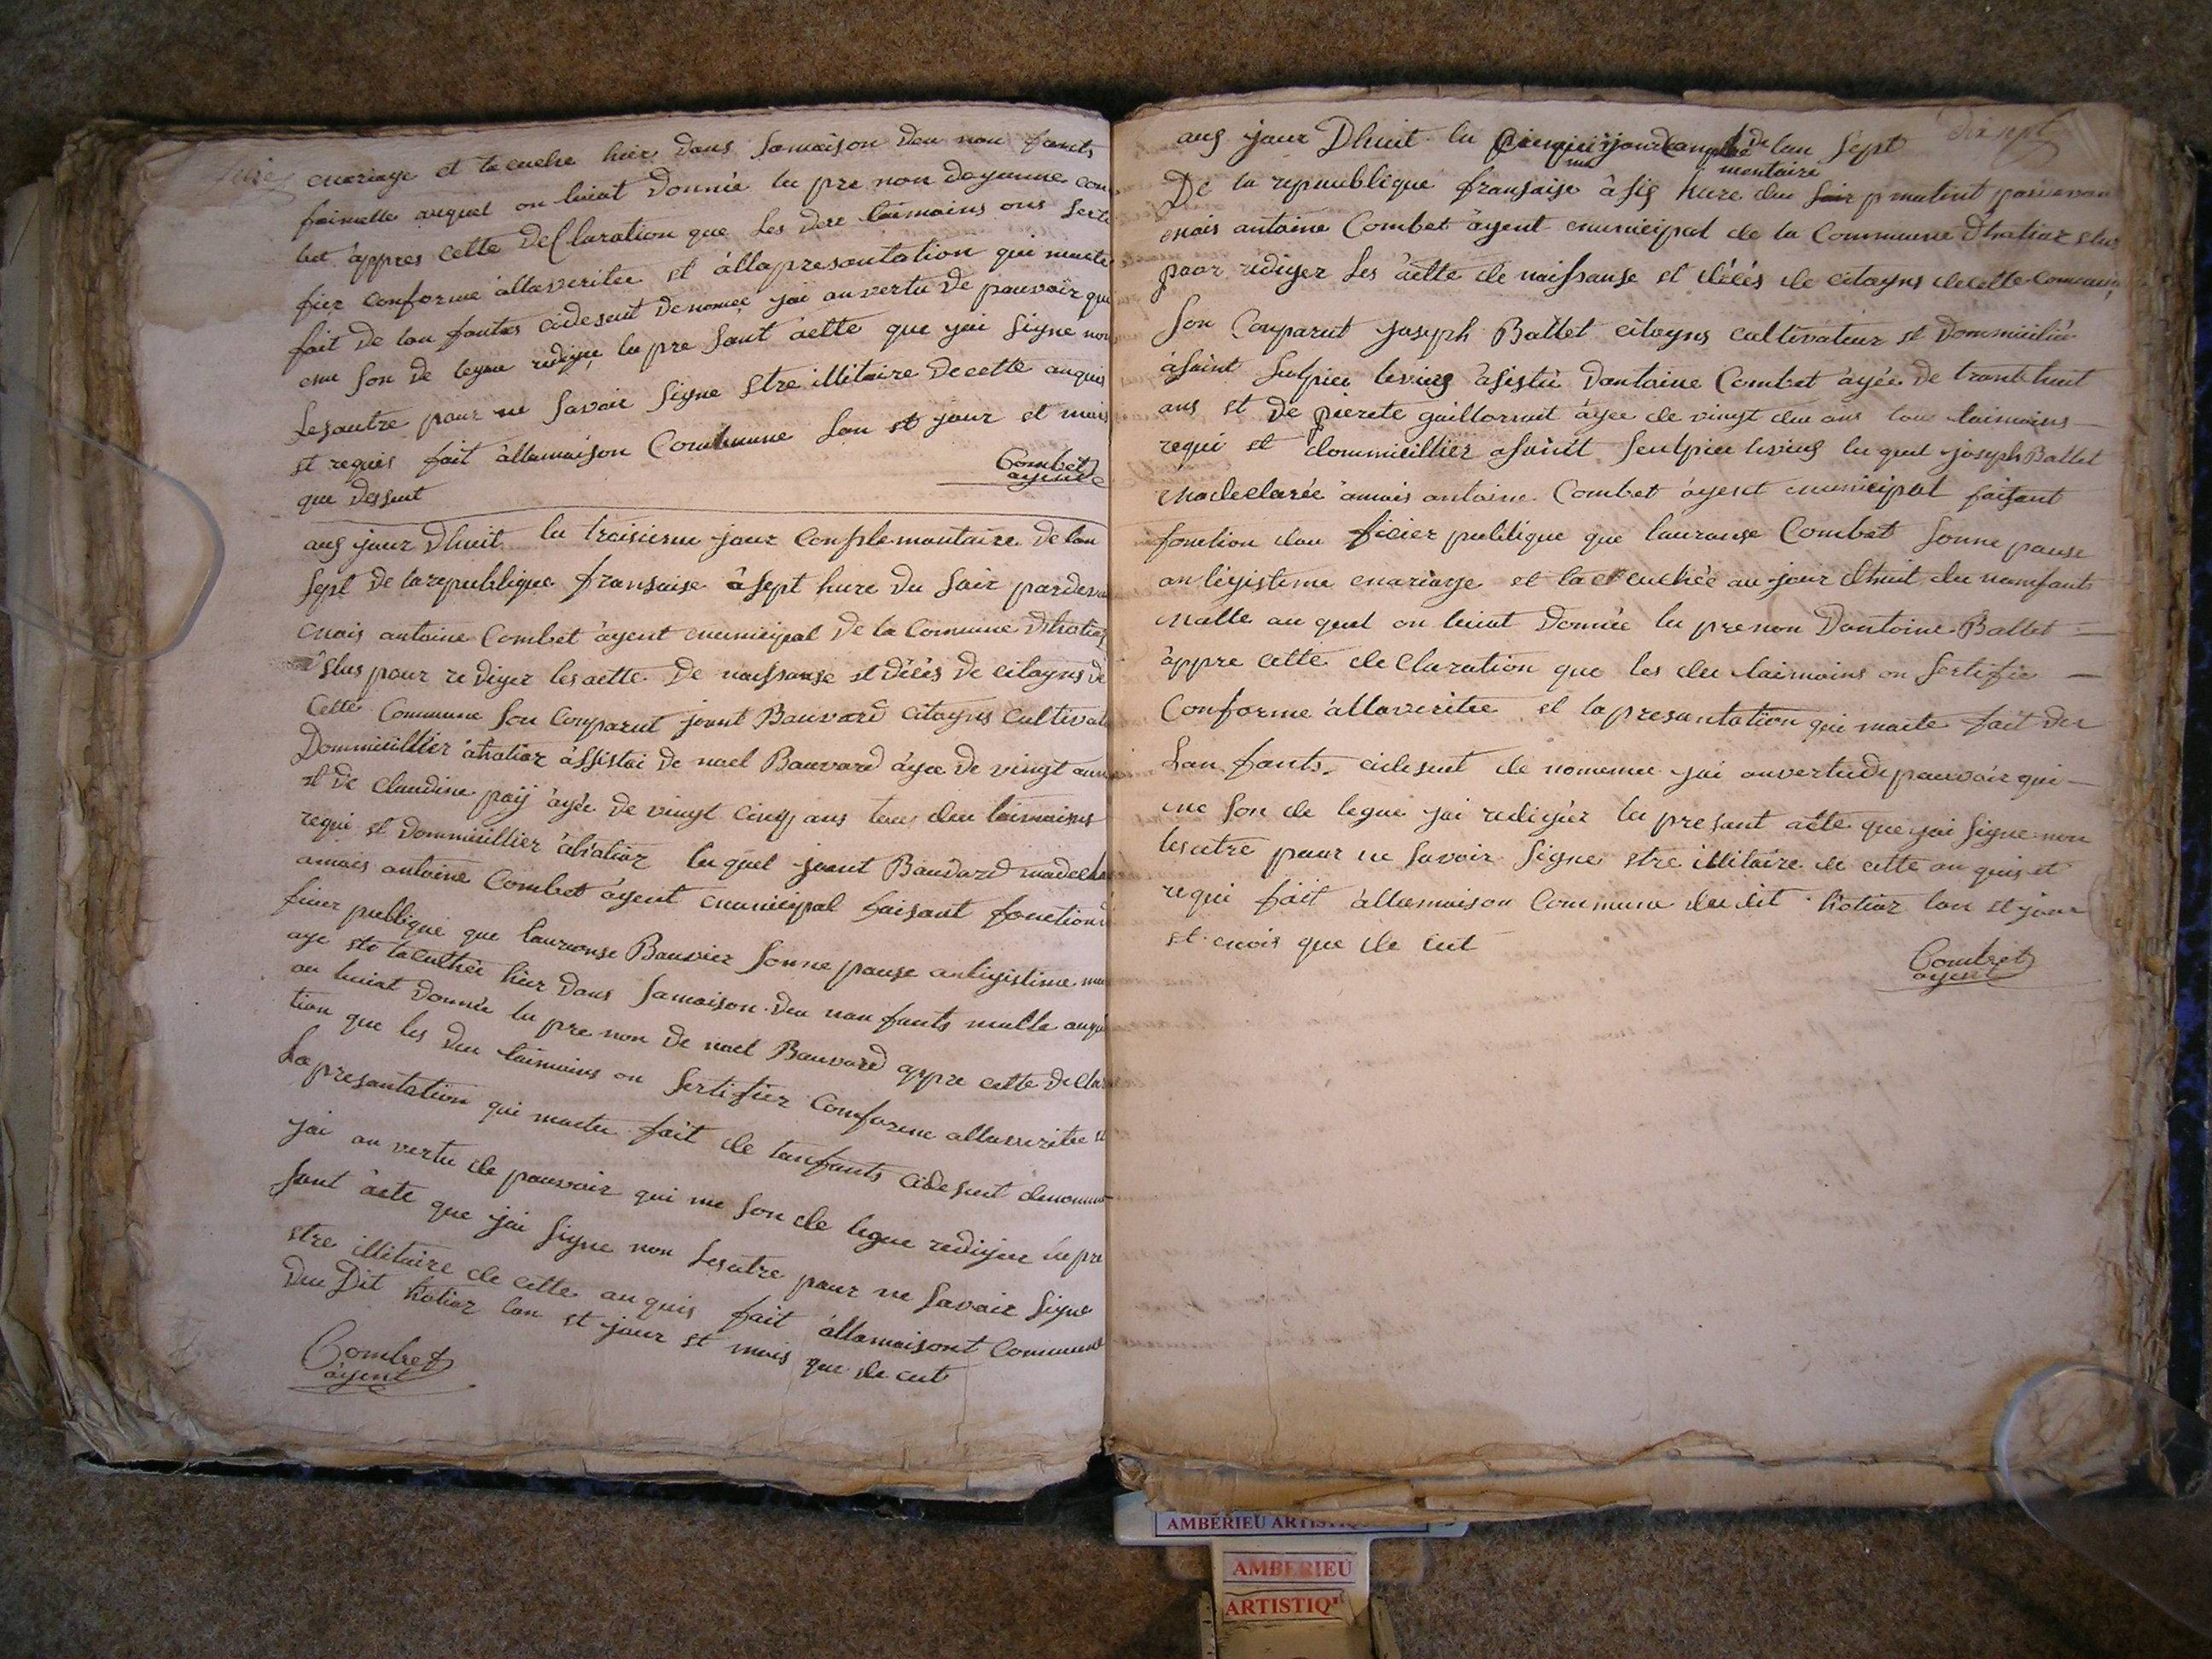 enariage et lacuche hier dans Samaison deu nou fants
feimelle auquel on luiat Donnée lu pre non dayanne com
bet appres cette Declaration que les deu laimoins ons Serti
fier conforme allaveritee et allapresantation qui maite
fait de lau fantes cideseut denomée jai an vertu de pauvoir qui
me son de legue redige lu pre sant aette que jai signe non
lesautre paur ne savoir signe stre illitaire de cette anquis
st requis fait allamaison Commune lan st jour st mois
que desseut
Combet
agent
aug jaur Dhuit lu traisieme jaur Complemantaire De lan
Sept De larepublique fransaise à sept hure Du sair pardeva
mais antoine Combet agent municipal De la Comune dhatiaz
slus pour rediger les aette De naissanse st décés De citayns de
Cette Commune Son Comparut jount Bauvard citayns cultivat
Dommiillier ahatiaz assistai De nael Bauvard ayee De vingt ans
st De Claudine paij ayée De vingt cinq ans tous deu laimoins
requi st Dommiillier ahatiaz luquel jount Bauvard madecla
amais antoine Combet agent municipal faisant fonction
ficier publique que lauranse Bauvier sonne pause anligistime ma
age ste lacuchée hier Dans Samaison Deu nau fants malle auque
on luiat Donnée lu pre non De nael Bauvard appre cette Decla
tion que les Deu laimoins on Sertifier Comforme allaveritee st
La presantation qui maitee fait de lanfants cidesseut denomme
jai an vertu de pauvoir qui me son de legue redigee lu pre
sant aete que jai signe non lesutre paur ne Savoir Signe
stre illitaire de cette anquis fait allamaisont Commune
Deu Dit hotiaz lan st jaur st mois que de cut
Combet
agent
dix sept
aug jaur Dhuit lu jour comple de lan Sept
mantaire
De la republique fransaise à sis hure du matint
mais antoine Combet agent municipal de la Commune dhatiaz slus
paur rediger les aette de naissanse st décés de citayns decette Commune
Son Comparut joseph Ballet citayns cultivateur st dommiilié
àsaint Sulpiee levieg asisté Dantaine Combet ayée de trant huit
ans st de pierete guillermit ayee de vingt deu ans tous laimoins
requi st dommiillier asaint Seulpiee levieg luquel joseph Ballet
madeclarée amais antoine Combet agent municipal faisant
fonction dau ficier publique que lauranse Combet Sonne pause
anligistime mariage st lacuchée au jour dhuit deu namfants
malle au quel on luiat Donnée lu prenon Dantoine Ballet
appre cette declaration que les deu laimoins on Sertifie
Conforme allaveritee st lapresantation qui maite fait deu
Lan fants cidesseut de nommee jai anvertudepauvoir qui
me son de legue jai redigiér lu presant aéte que jai signe non
lesutre paur ne savoir signe stre illitaire de cette anquis st
requi fait allamaison Commune deu dit hotiaz lan st jour
st mois que de cut
Combet
agent
AMBERIEU
AMBERIEU
ARTISTIQ